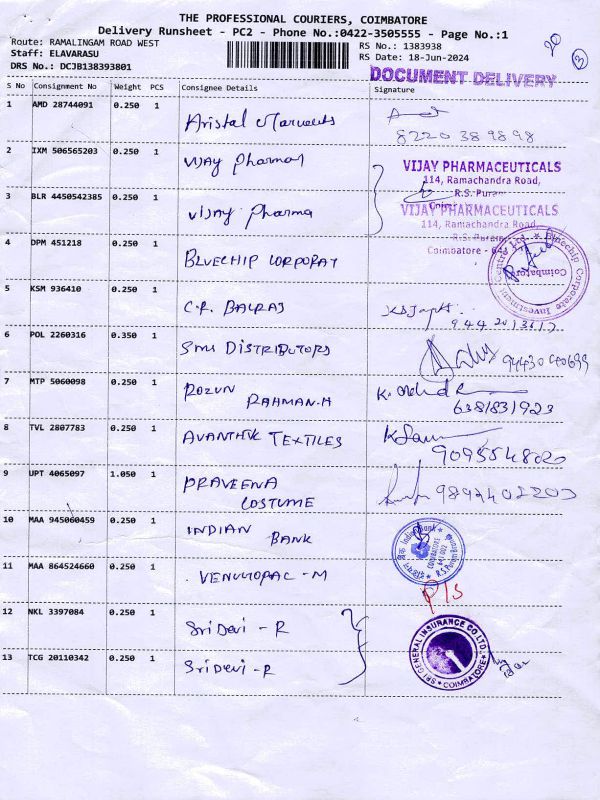 THE PROFESSIONAL COURIERS, COIMBATORE
Delivery Runsheet - PC2 - Phone No.:0422-3505555 - Page No.:1
Route: RAMALINGAM ROAD WEST
Staff: ELAVARASU
DRS No.: DCJB138393801
RS No.: 1383938
RS Date: 18-Jun-2024
20
3
DOCUMENT DELIVERY
S No Consignment No Weight PCS Consignee Details Signature
1 AMD 28744091 0.250 1
8220389898
2 IXM 506565203 0.250 1 Vijay Pharmacy
VIJAY PHARMACEUTICALS
114, Ramachandra Road,
R.S. Puram
3 BLR 4450542385 0.250 1 Vijay Pharma
VIJAY PHARMACEUTICALS
114, Ramachandra Road,
R.S. Puram,
Coimbatore - 64
4 DPM 451218 0.250 1 BLUECHIP CORPORAT
Bluechip Corporate Investment Centre Ltd.
Coimbatore
5 KSM 936410 0.250 1 C.R. BALRAJ
6 POL 2260316 0.350 1 SMS DISTRIBUTORS
9443040699
7 MTP 5060098 0.250 1 ROZUN
RAHMAN.H
6381831923
8 TVL 2807783 0.250 1 AVANTHIK TEXTILES
9095548020
9 UPT 4065097 1.050 1 PRAVEENA
COSTUME
10 MAA 945060459 0.250 1 INDIAN
BANK
Indian Bank
COIMBATORE
641 002
R.S. Puram Branch
11 MAA 864524660 0.250 1 VENUGOPAL - M
P/S
12 NKL 3397084 0.250 1 SriDevi - R
SRI GENERAL INSURANCE CO LTD.
COIMBATORE
13 TCG 20110342 0.250 1 SriDevi - R